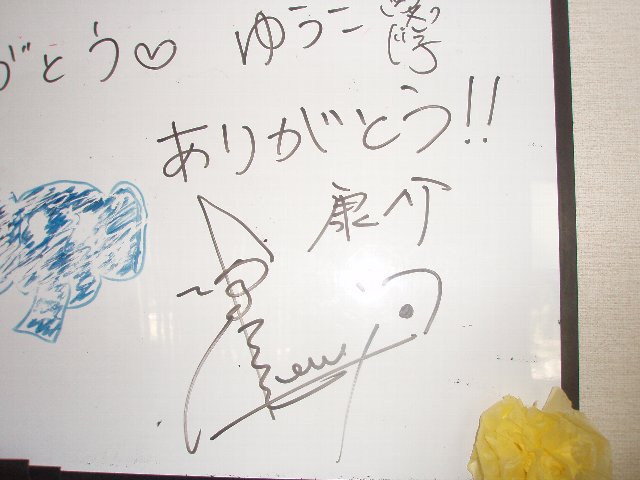 がとう♡ ゆうこ
ありがとう!!
康介